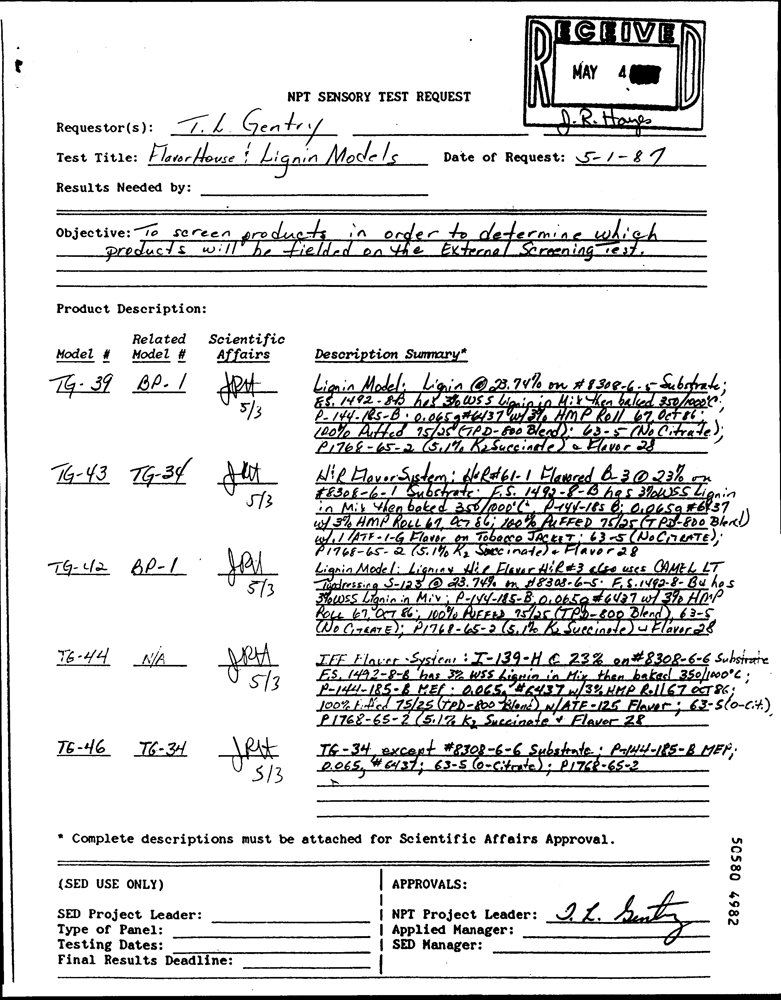 RECEIVED
MAY 4
J. R. Hayes
NPT SENSORY TEST REQUEST
Requestor(s): T. L. Gentry
Test Title: FlavorHouse & Lignin Models Date of Request: 5-1-87
Results Needed by:
Objective: To screen products in order to determine which
products will be fielded on the External Screening Test.
Product Description:
Related Scientific
Model # Model # Affairs Description Summary*
TG-39 BP-1 JRH Lignin Model: Lignin @ 23.74% on #8308-6-5 Substrate;
5/3 F.S. 1492-8-B has 3% WSS Lignin in Mix then baked 350/1000°C;
P-144-185-B; 0.065g #6437 w/ 3% HMP Roll 67, Oct 86;
100% Puffed 75/25 (TPD-800 Blend); 63-5 (No Citrate);
P1768-65-2 (5.1% K2 Succinate) Flavor 28
TG-43 TG-34 JRH H&R Flavor System: H&R #61-1 Flavored B-3 @ 23% on
5/3 #8308-6-1 Substrate; F.S. 1492-8-B has 3% WSS Lignin
in Mix then baked 350/1000°C; P-144-185 B; 0.065g #6437
w/ 3% HMP ROLL 67, OCT 86; 100% PUFFED 75/25 (TPD-800 Blend)
w/.1 / ATF-1-G Flavor on Tobacco JACKET; 63-5 (No CITRATE);
P1768-65-2 (5.1% K2 Succinate) + Flavor 28
TG-42 BP-1 JRH Lignin Model: H&R Flavor H&R #3 also uses CAMEL LT
5/3 Topdressing S-123 @ 23.74% on #8308-6-5; F.S. 1492-8-B has
3% WSS Lignin in Mix; P-144-185-B; 0.065g #6437 w/ 3% HMP
ROLL 67, OCT 86; 100% PUFFED 75/25 (TPD-800 Blend), 63-5
(No CITRATE); P1768-65-2 (5.1% K2 Succinate) Flavor 28
TG-44 N/A JRH IFF Flavor System: I-139-H @ 23% on #8308-6-6 Substrate
5/3 F.S. 1492-8-B has 3% WSS Lignin in Mix then baked 350/1000°C;
P-144-185-B MEP; 0.065g #6437 w/ 3% HMP Roll 67 OCT 86;
100% Puffed 75/25 (TPD-800 Blend) w/ATF-125 Flavor; 63-5 (0-Cit.)
P1768-65-2 (5.1% K2 Succinate + Flavor 28
TG-46 TG-34 JRH TG-34 except #8308-6-6 Substrate; P-144-185-B MEP;
5/3 0.065g #6437; 63-5 (0-Citrate); P1768-65-2
* Complete descriptions must be attached for Scientific Affairs Approval.
(SED USE ONLY) APPROVALS:
SED Project Leader: NPT Project Leader: T. L. Gentry
Type of Panel: Applied Manager:
Testing Dates: SED Manager:
Final Results Deadline:
50580 4982